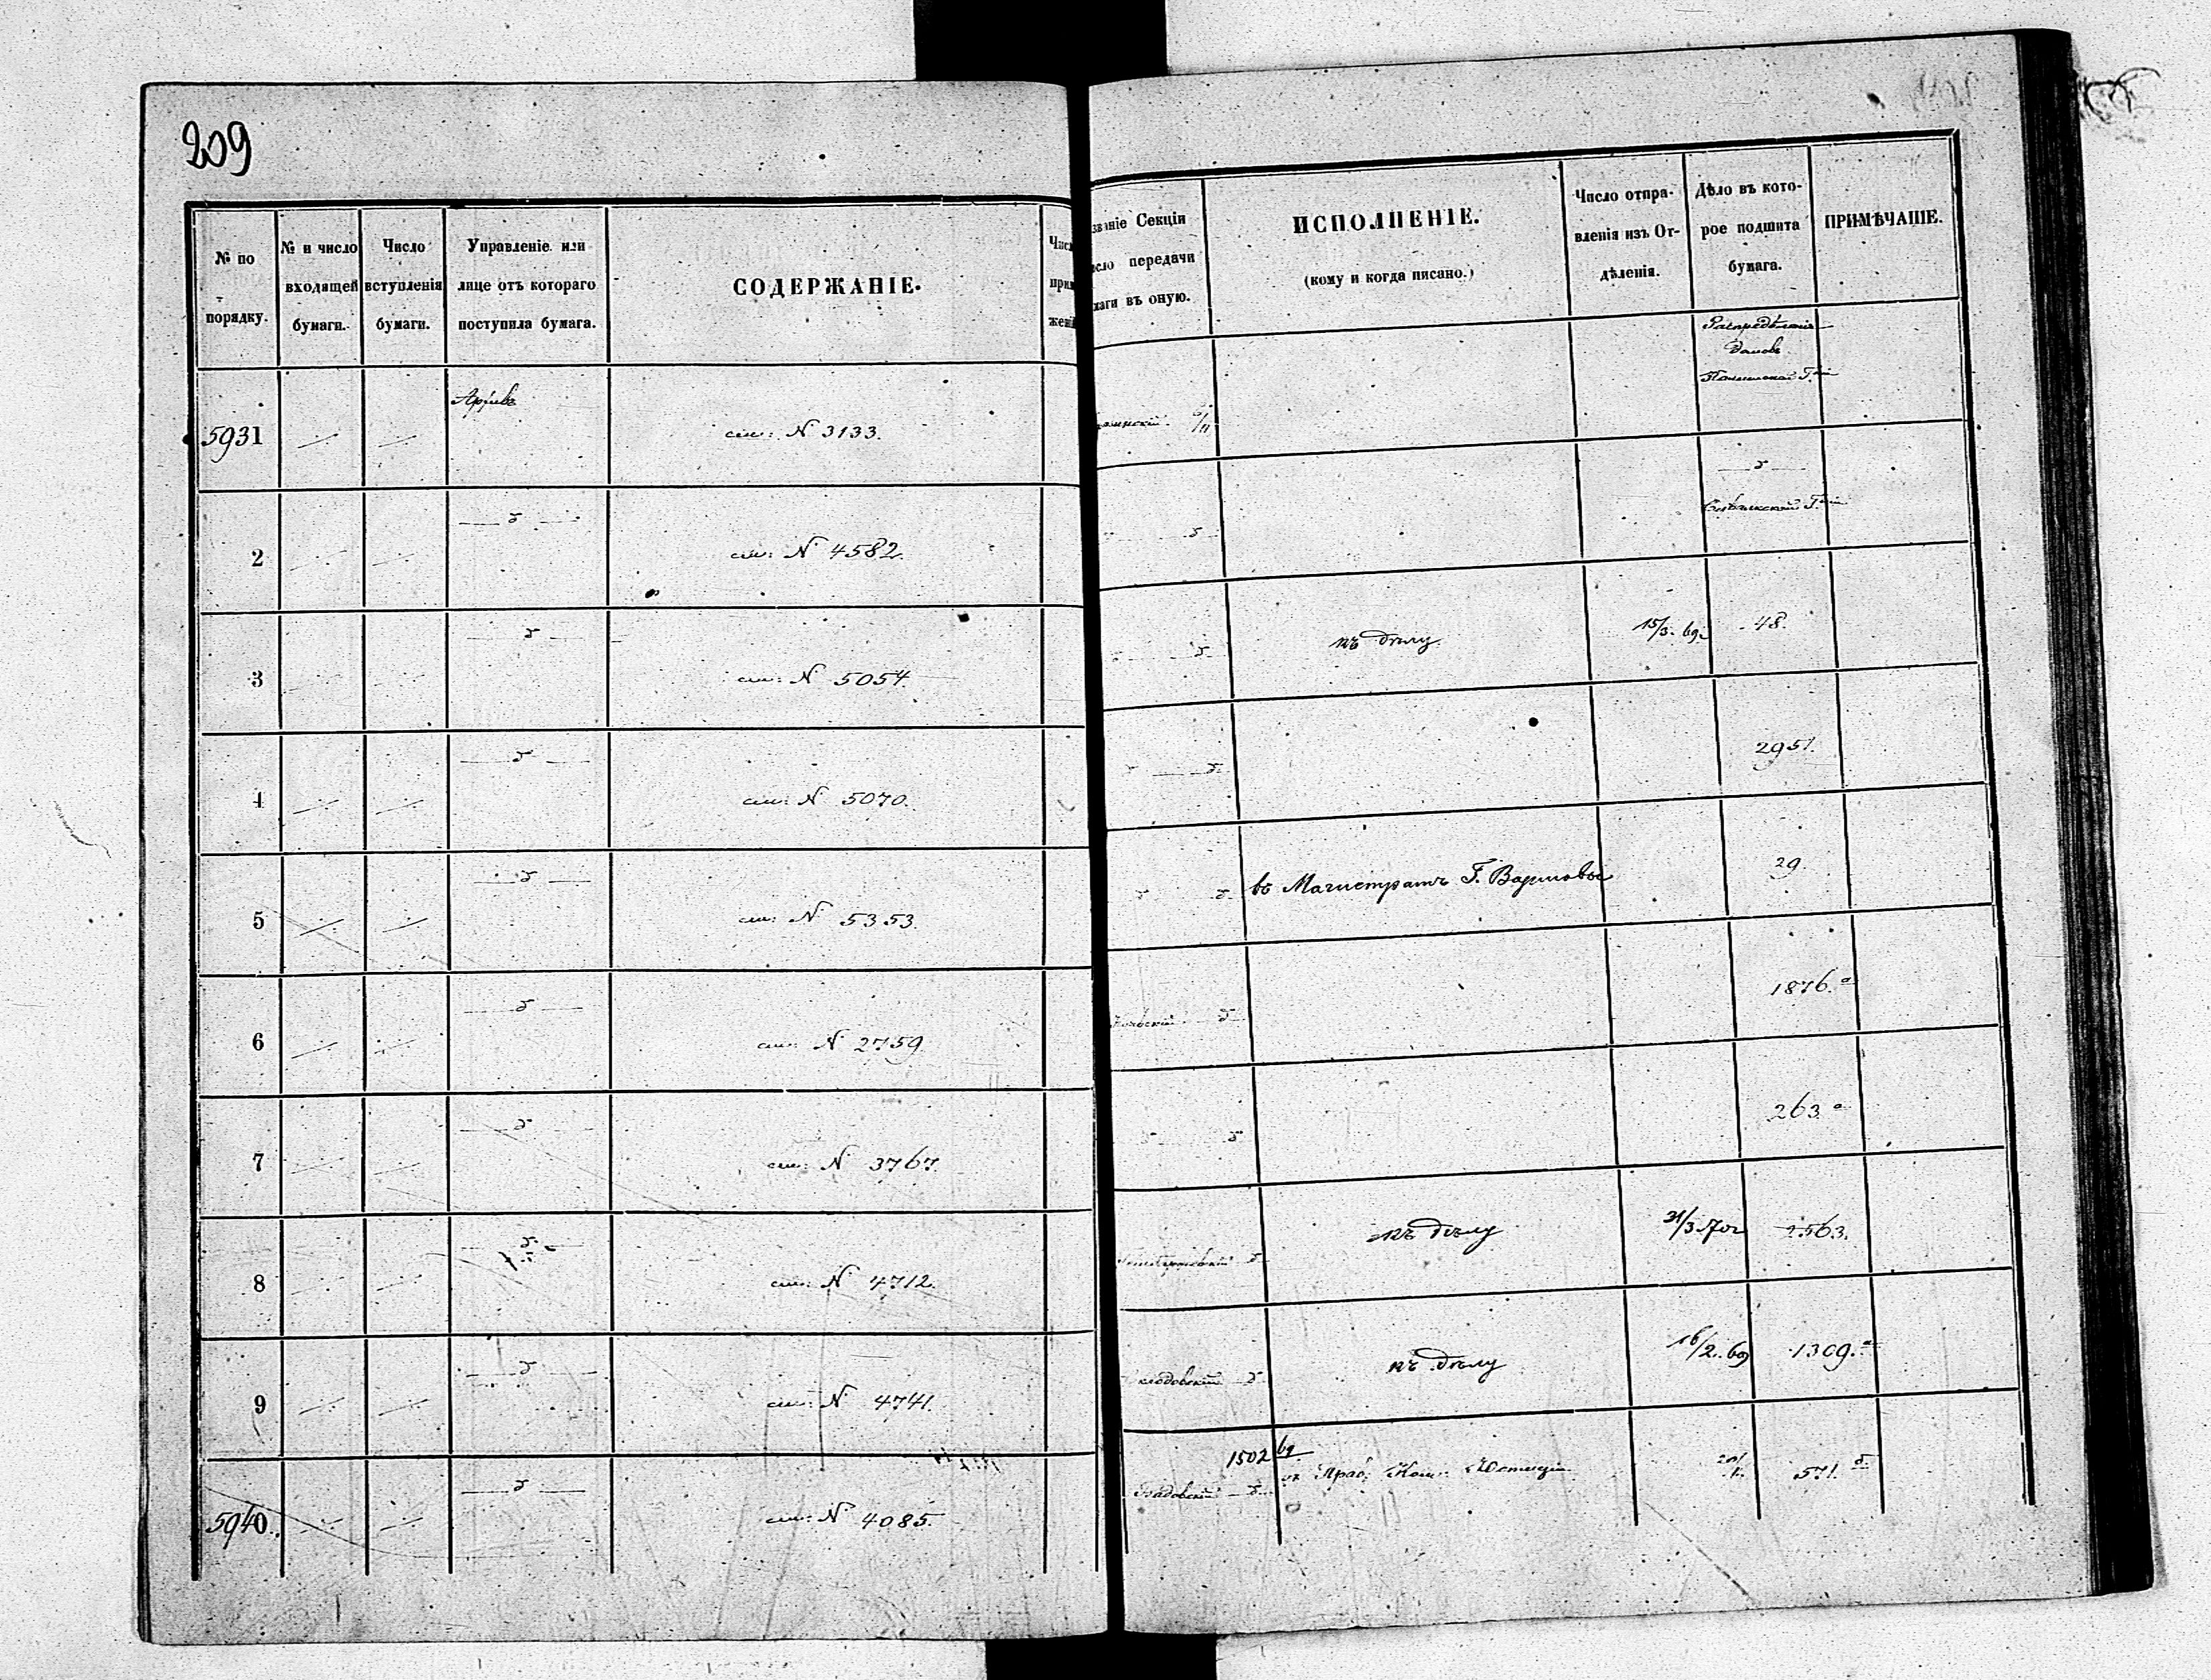 209
№ по
порядку.
№ и число
входящей
бумаги.
Число
вступленія
бумаги.
Управленіе или
лице отъ котораго
поступила бумага.
СОДЕРЖАНІЕ.
Числ
прил
жені
званіе Секціи
сло передачи
маги въ оную.
ИСПОЛНЕНІЕ.
(кому и когда писано.)
Число отпра-
вленія изъ От-
дѣленія.
Дѣло въ кото-
рое подшита
бумага.
ПРИМѢЧАНІЕ.
5931
Архивъ
см: № 3133.
Распредѣленіе
2
см: № 4582.
3
см: № 5054.
къ дѣлу
15/3. 69.
48.
4
см: № 5070.
2951.
5
см: № 5353.
въ Магистратъ Г. Варшавы
29.
6
см: № 2759
1876. а
7
см: № 3767.
263. а
8
см: № 4712.
къ дѣлу
31/3 70
2563.
9
см: № 4741.
къ дѣлу
16/2. 69
1309. а
5940.
см: № 4085.
1502
69
Прав. Ком. Юстиціи
571. б